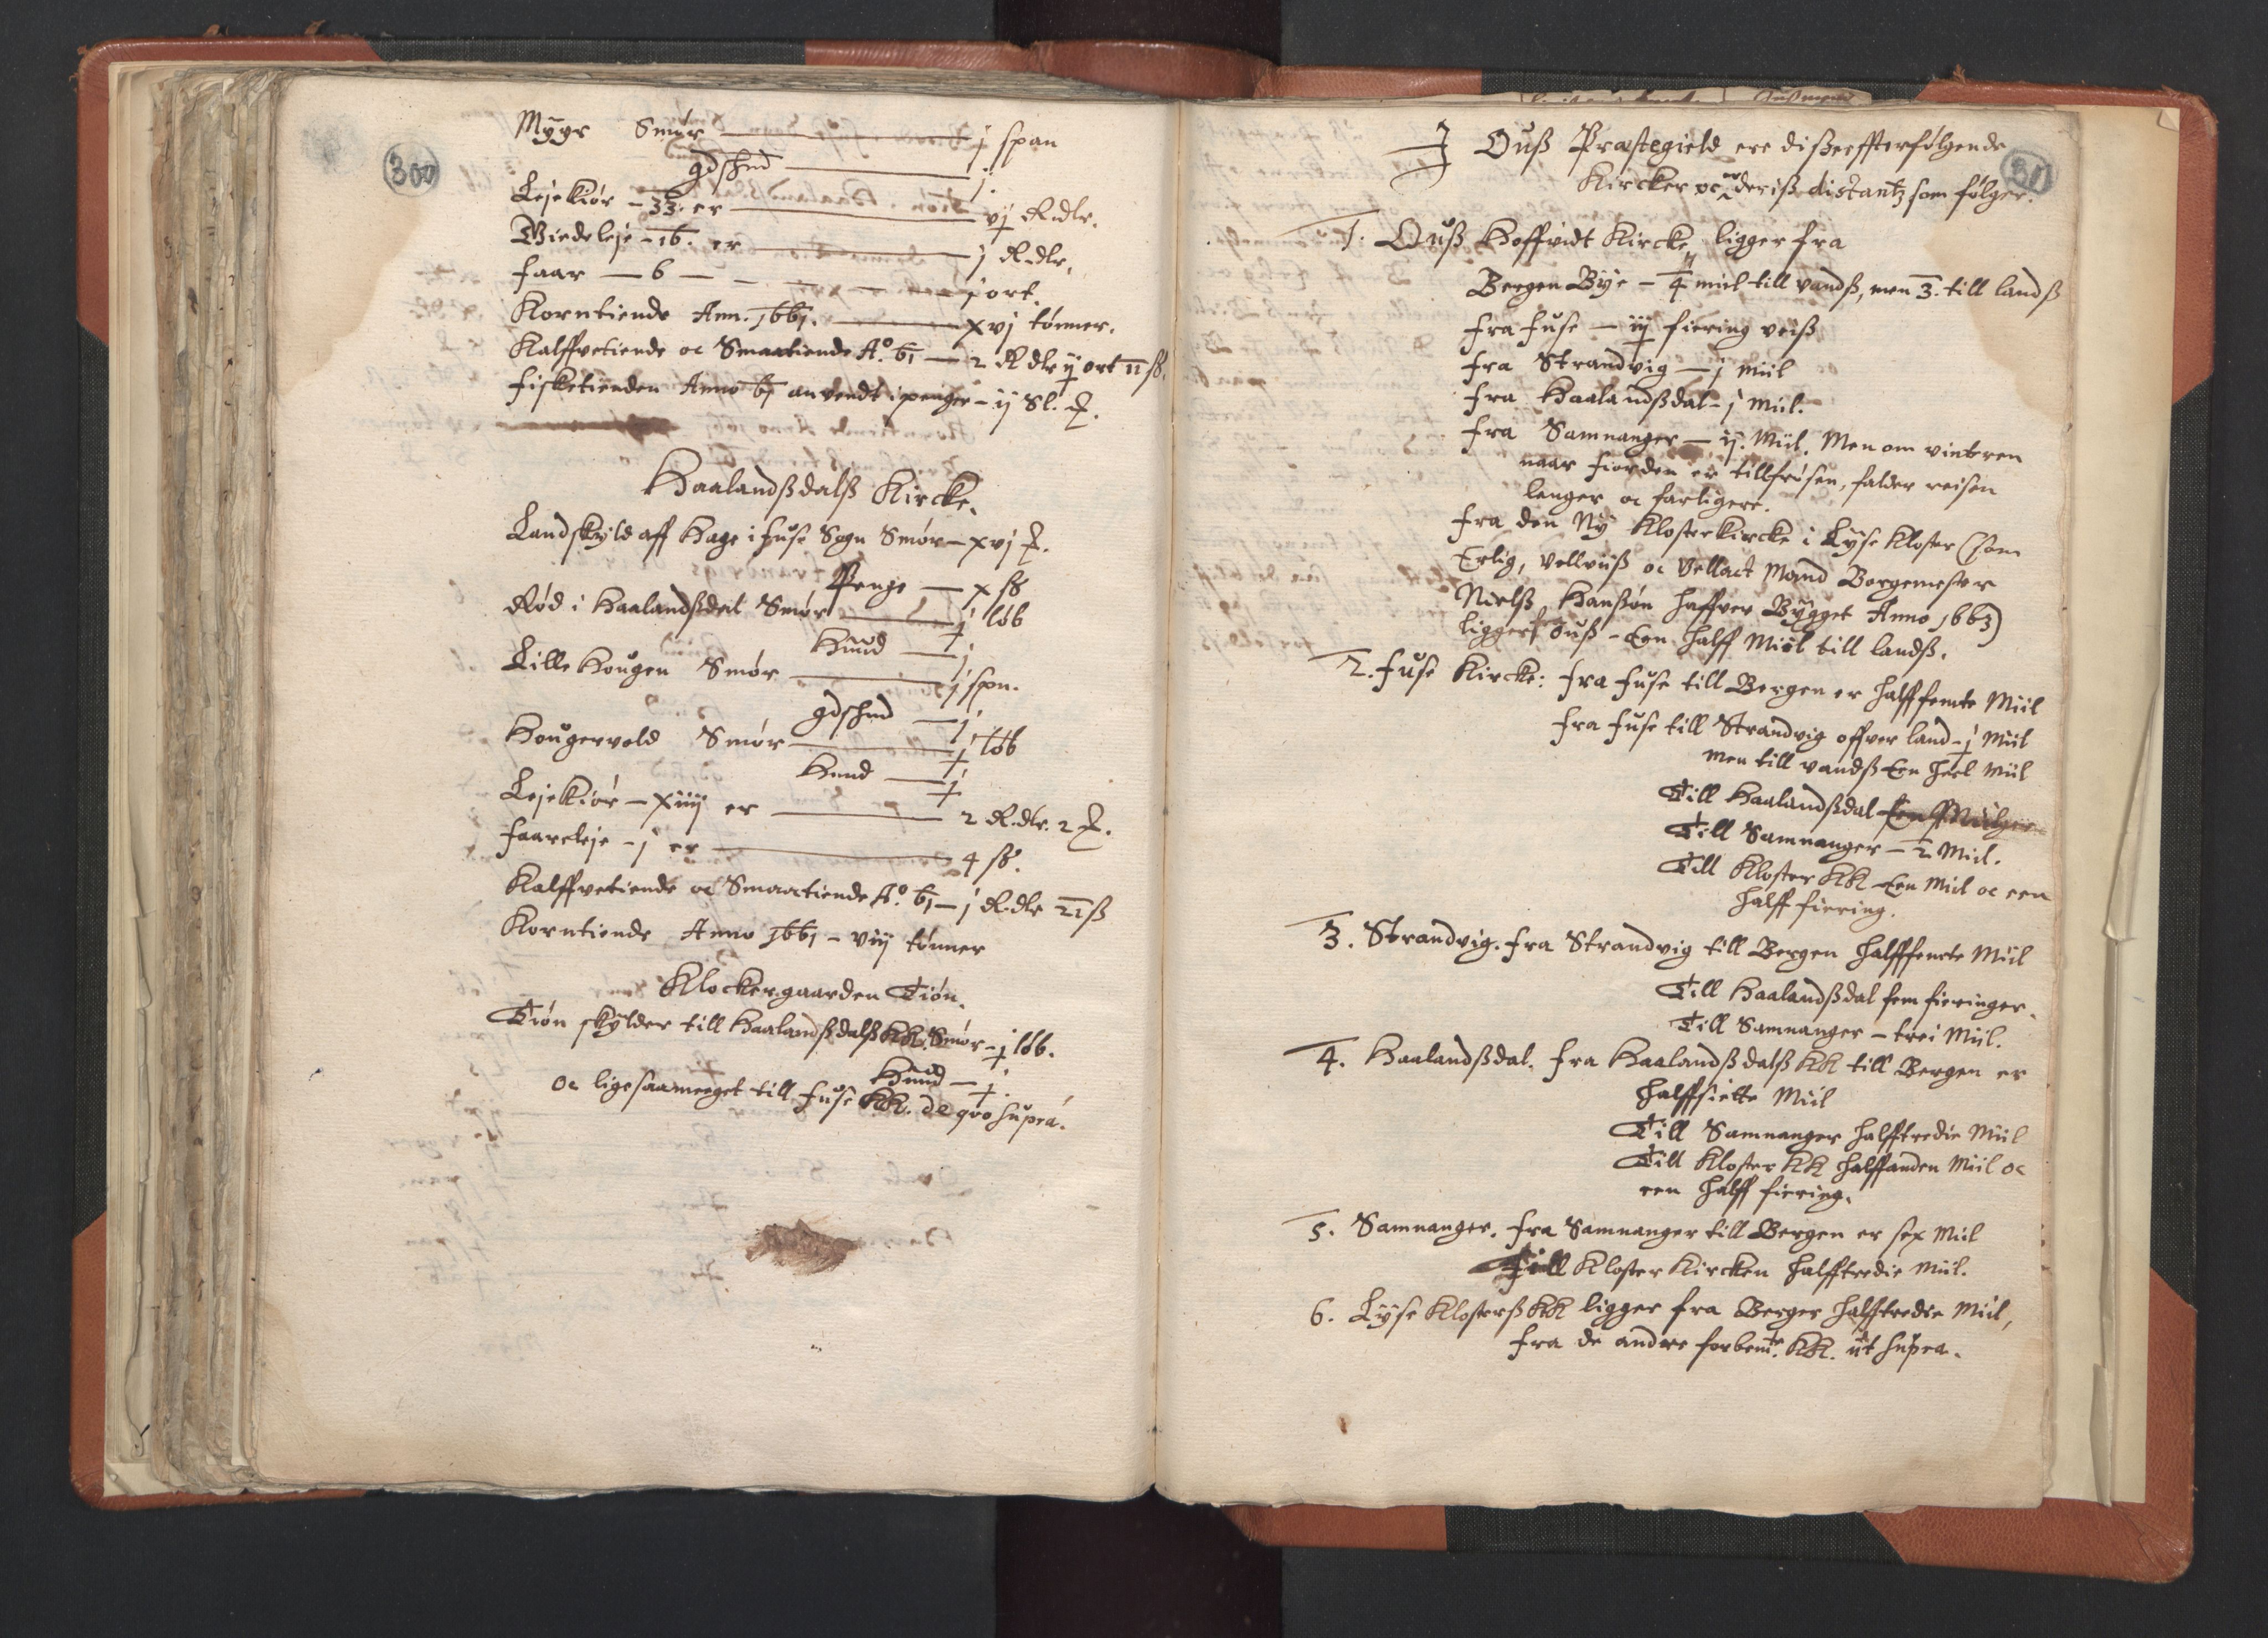 300
Mygr Smør — j span
gdshud — j.
Lejekiør – 33. er — vj R.dlr.
Giedeleje – 16. er — j R.dlr.
Faar — 6 — j ort.
Korntiende Ann. 1661. — xvj tønner.
Kalffvetiende oc Smaatiende Aº. 61 — 2 R dlr ij ort 11 sß.
Fisketienden Anno 61 anvendt i penger – ij Sl. ₰.
Haalandßdalß Kircke.
Landskyld aff Hage i Fuse Sogn Smør – xvj ₰.
Penge — x sß
Rød i Haalandßdal Smør — j løb
Huud — j
Lille Hougen Smør — j spn.
gdshud — j
Hougervold Smør — j løb
Huud — j
Lejekiør – xiiij er — 2 R.dlr. 2 ₰.
Faareleje – j er — 4 sß.
Kalffvetiende oc Smaatiende Aº. 61 – j R.dlr 21 ß
Korntiende Anno 1661 – viij tønner
Klockergaarden Tiøn.
Tiøn skylder till Haalandßdalß KK. Smør – j løb.
Huud – j.
oc ligesaameeget till Fuse KK. de qvo supra.
301
I Ouß Præstegield ere dißeeffterfølgende
Kircker oc er deriß distantz som følger.
1. Ouß Hoffvidt Kircke, ligger fra
Bergen Bÿe – 4 miil till vandß, men 3. till landß
fra Fuse – iij fiering veiß
fra Strandvig – j Miil
fra Haalandßdal – j Miil.
fra Samnanger – ij. Miil. Men om vinteren
naar fiorden er tillfrøsen, falder reisen
lenger oc farligere.
fra den Nÿ Klosterkircke i Lÿse Kloster (som
Erlig, Vellviiß oc Vellact Mand Borgemester
Nielß Hanßøn haffver Bÿgget Anno 1663)
ligger f Ouß – Een halff Miil till landß.
2. Fuse Kircke: fra Fuse till Bergen er halfffemte Miil
fra Fuse till Strandvig offver land – j Miil
men till vandß Een heel Miil
Till Haalandßdal
Till Samnanger – 2 Miil.
Till Kloster KK Een Miil oc een
halff fiering.
3. Strandvig. fra Strandvig till Bergen halfffemte Miil
Till Haalandßdal fem fieringer.
Till Samnanger – trei Miil.
4. Haalandßdal. fra Haalandßdalß KK till Bergen er
halffsiette Miil
Till Samnanger halfftredie Miil
Till Kloster KK halffanden Miil oc
een halff fiering.
5. Samnanger. fra Samnanger till Bergen er sex Miil
Till Kloster Kircken halfftredie Miil.
6. Lÿse Klosterß KK ligger fra Berger halfftredie Miil,
fra de andre forbemte. KK. ut supra.